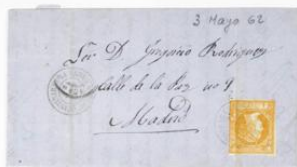 3 Mayo 62
Sor. D. Gregorio Rodriguez
Calle de la Paz no 4
Madrid